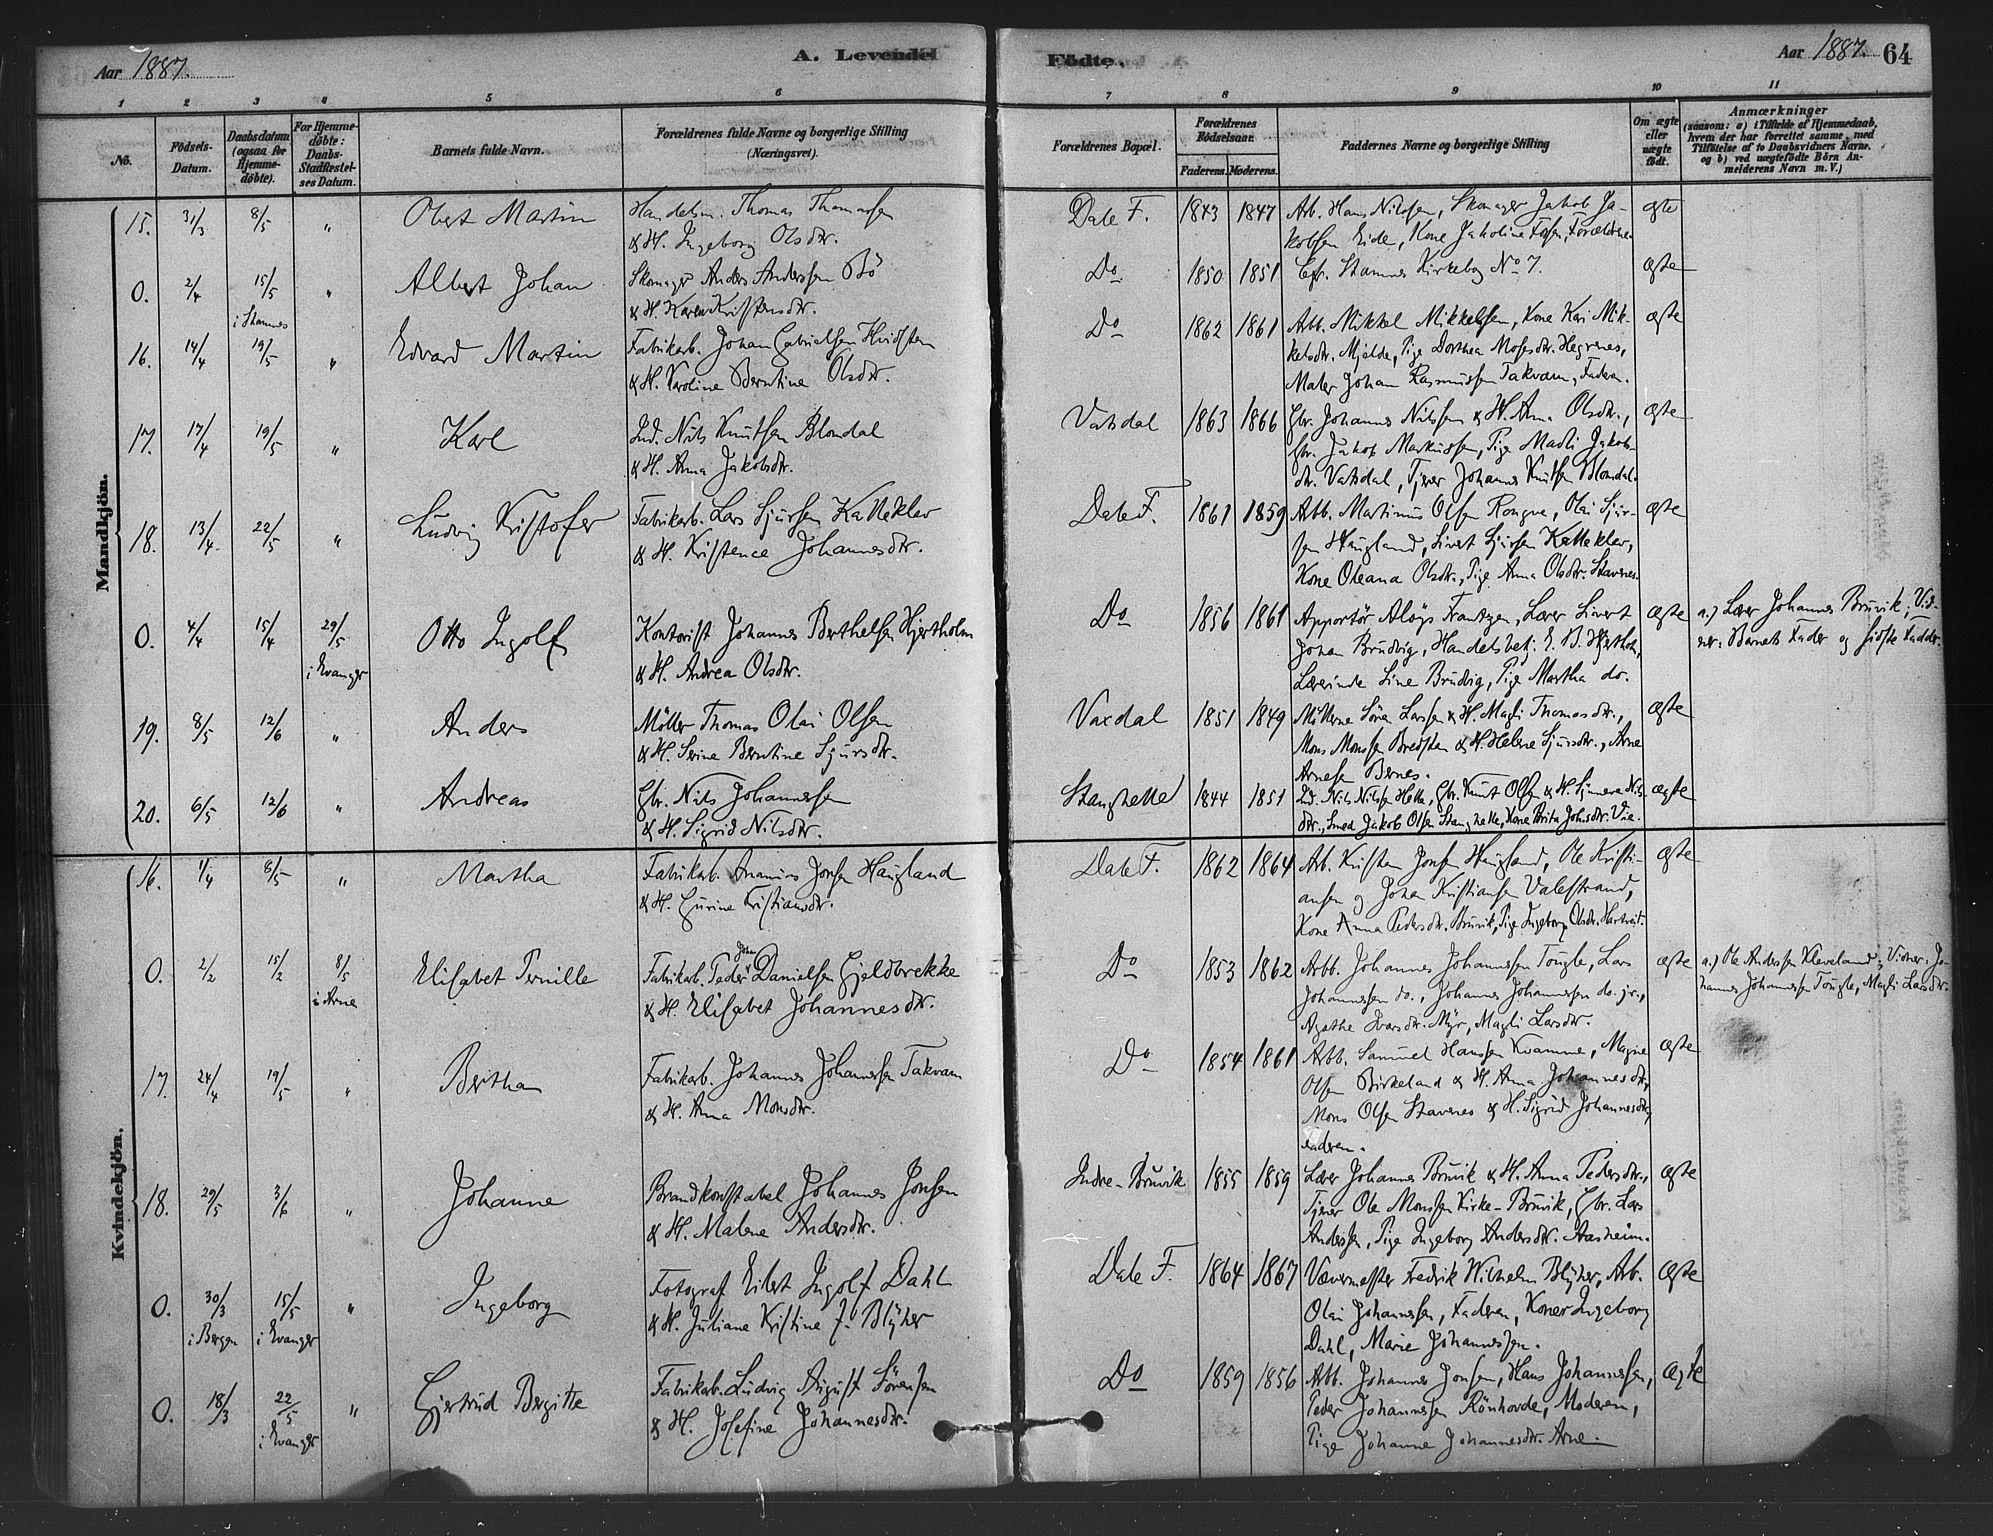 Aar 1887.
A. Levendel
Födte.
Aar 1887.
64
1 2 3 4 5 6 7 8 9 10 11
No.
Födsels-
Datum.
Daabsdatum
(ogsaa for
Hjemme-
döbte).
For Hjemme-
döbte:
Daabs-
Stadfæstel-
ses Datum.
Barnets fulde Navn.
Forældrenes fulde Navne og borgerlige Stilling
(Næringsvei).
Forældrenes Bopæl.
Forældrenes
Födselsaar.
Faderens. Moderens.
Faddernes Navne og borgerlige Stilling
Om ægte
eller
uægte
födt.
Anmærkninger
(saasom: a) i Tilfælde af Hjemmedaab,
hvem der har forrettet samme, med
Tilföielse af to Daabsvidners Navne,
og b) ved uægtefödte Börn An-
melderens Navn m. V.)
Mandkjön.
15. 31/3 8/5 " Obert Martin
Handelsm. Thomas Thomassen
& H. Ingeborg Olsdtr.
Dale F. 1843 1847
Arb. Hans Nilssen, Skomager Jakob Ja-
kobsen Eide, Kone Jakobine Fossen, Forældrene.
ægte
0. 2/4 15/5 i Stamnes " Albert Johan
Skomager Anders Anderssen Bö
& H. Karen Kristensdtr.
Do 1850 1851
Cfr. Stamnes Kirkebog No 7.
ægte
16. 14/4 19/5 " Edvard Martin
Fabrikarb. Johan Gabrielsen Hvidsten
& H. Karoline Berntine Olsdtr.
Do 1862 1861
Arb. Mikkel Mikkelsen, Kone Kari Mik-
kelsdtr. Mjelde, Pige Dorthea Mosesdtr. Hegrenes,
Maler Johan Rasmussen Takvam, Faderen.
ægte
17. 17/4 19/5 " Karl
Ind. Nils Knutsen Blomdal
& H. Anna Jakobsdtr.
Vatsdal 1863 1866
Gbr. Johannes Nilssen & H. Anna Olsdtr.,
Gbr. Jakob Markussen, Pige Madli Jakobs-
dtr. Vatsdal, Tjener Johannes Knutsen Blomdal.
ægte
18. 13/4 22/5 " Ludvig Kristofer
Fabrikarb. Lars Sjursen Katteklev
& H. Kristence Johannesdtr.
Dale F. 1861 1859
Arb. Martinus Olsen Rongve, Olai Sjur-
sen Haugland, Sivert Sjursen Katteklev,
Kone Oleana Olsdtr., Pige Anna Olsdtr. Stavenes.
ægte
0. 4/4 15/4 29/5 i Evanger Otto Ingolf
Kontorist Johannes Berthelsen Hjertholm
& H. Andrea Olsdtr.
Do 1856 1861
Apportör Aloys Frantzen, Lærer Sivert
Johan Brudvig, Handelsbetj. E. B. Hjertholm,
Lærerinde Line Brudvig, Pige Martha do.
ægte
a.) Lærer Johannes Bruvik; Vid-
ner: Barnets Fader og sidste Fadder.
19. 8/5 12/6 " Anders
Möller Thomas Olai Olsen
& H. Serine Berntine Sjursdtr.
Vaxdal 1851 1849
Möllerne Sören Larssen & H. Magli Thomasdtr.,
Mons Monssen Bredsten & H. Helene Sjursdtr., Arne
Arnesen Bernes.
ægte
20. 6/5 12/6 " Andreas
Gbr. Nils Johannessen
& H. Sigrid Nilsdtr.
Stanghelle 1844 1851
Ind. Nils Nilssen Helle, Gbr. Knut Olsen & H. Synneva Nils-
dtr., Smed Jakob Olsen Stanghelle, Kone Brita Johsdtr. Vie.
ægte
Kvindekjön.
16. 1/4 8/5 " Martha
Fabrikarb. Ananias Jonsen Haugland
& H. Gurine Kristiansdtr.
Dale F. 1862 1864
Arb. Kristen Jonsen Haugland, Ole Kristi-
ansen og Johan Kristiansen Valestrand,
Kone Anna Pedersdtr. Bruvik, Pige Ingeborg Olsdtr. Hartveit.
ægte
0. 2/2 15/2 8/5 i Arne Elisabet Pernille
Fabrikarb. Peder Johan Danielsen Gjeldbrekke
& H. Elisabet Johannesdtr.
Do 1853 1862
Arbb. Johannes Johannessen Fougle, Lars
Johannessen do., Johannes Johannessen do. jr.,
Agathe Ivarsdtr. Myr, Magli Larsdtr.
ægte
a.) Ole Anderssen Kleveland; Vidner: Jo-
hannes Johannessen Fougle, Magli Larsdtr.
17. 24/4 19/5 " Bertha
Fabrikarb. Johannes Johannessen Takvam
& H. Anna Monsdtr.
Do 1854 1861
Arb. Samuel Hanssen Kvamme, Magne
Olsen Birkeland & H. Anna Johannesdtr,
Mons Olsen Stavenes & H. Sigrid Johannesdtr,
Faderen.
ægte
18. 29/5 3/6 " Johanne
Brandkonstabel Johannes Jonsen
& H. Malene Andersdtr.
Indre-Bruvik 1855 1859
Lærer Johannes Bruvik & H. Anna Pedersdtr.,
Tjener Ole Monssen Kirke-Bruvik, Gbr. Lars
Anderssen, Pige Ingeborg Andersdtr. Aasheim.
ægte
0. 30/3 i Bergen 15/5 i Evanger " Ingeborg
Fotograf Eilert Ingolf Dahl
& H. Juliane Kristine f. Blyher
Dale F. 1864 1867
Vævermester Fredrik Wilhelm Blyher, Arb.
Olai Johannessen, Faderen, Koner Ingeborg
Dahl, Marie Johannessen.
ægte
0. 18/3 22/5 i Evanger " Gjertrud Bergitte
Fabrikarb. Ludvig August Sörensen
& H. Josefine Johannesdtr.
Do 1859 1856
Arbb. Johannes Jonsen, Hans Johannessen,
Peder Johannessen Rönhovde, Moderen,
Pige Johanne Johannesdtr. Arne.
ægte